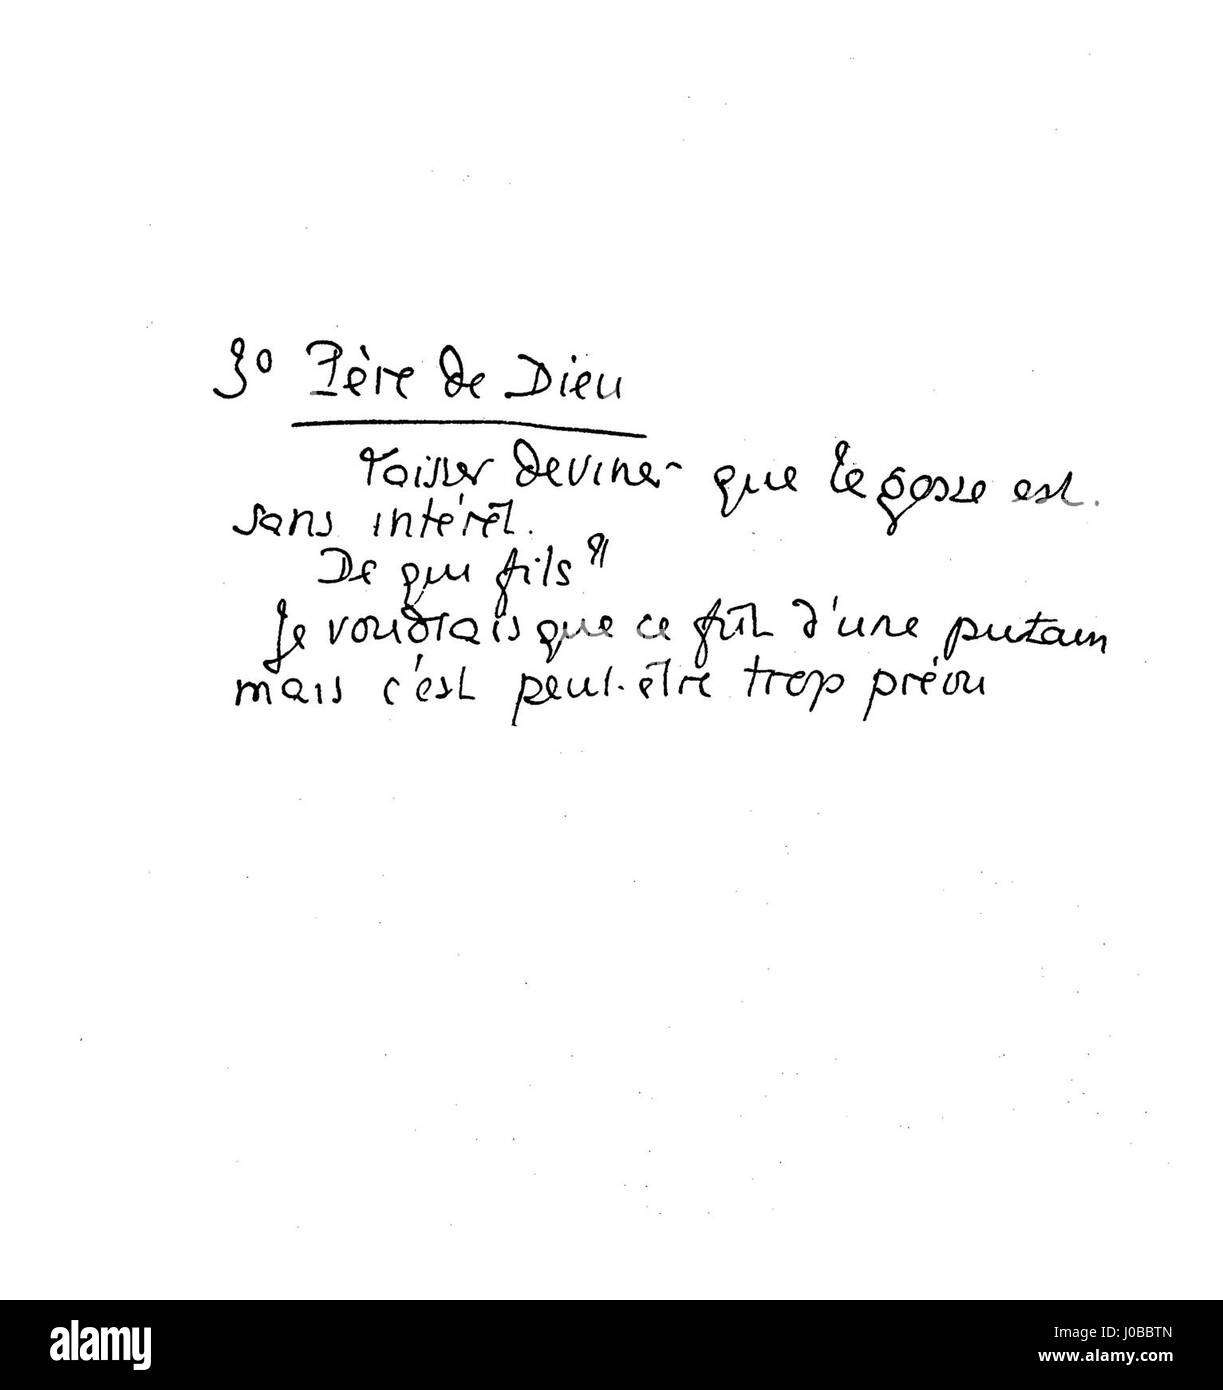 3° Père de Dieu
Laisser deviner que le gosse est
sans intérêt.
De qui fils ?
Je voudrais que ce fût d'une putain
mais c'est peut-être trop prévu
alamy
Image ID: J0BBTN
www.alamy.com